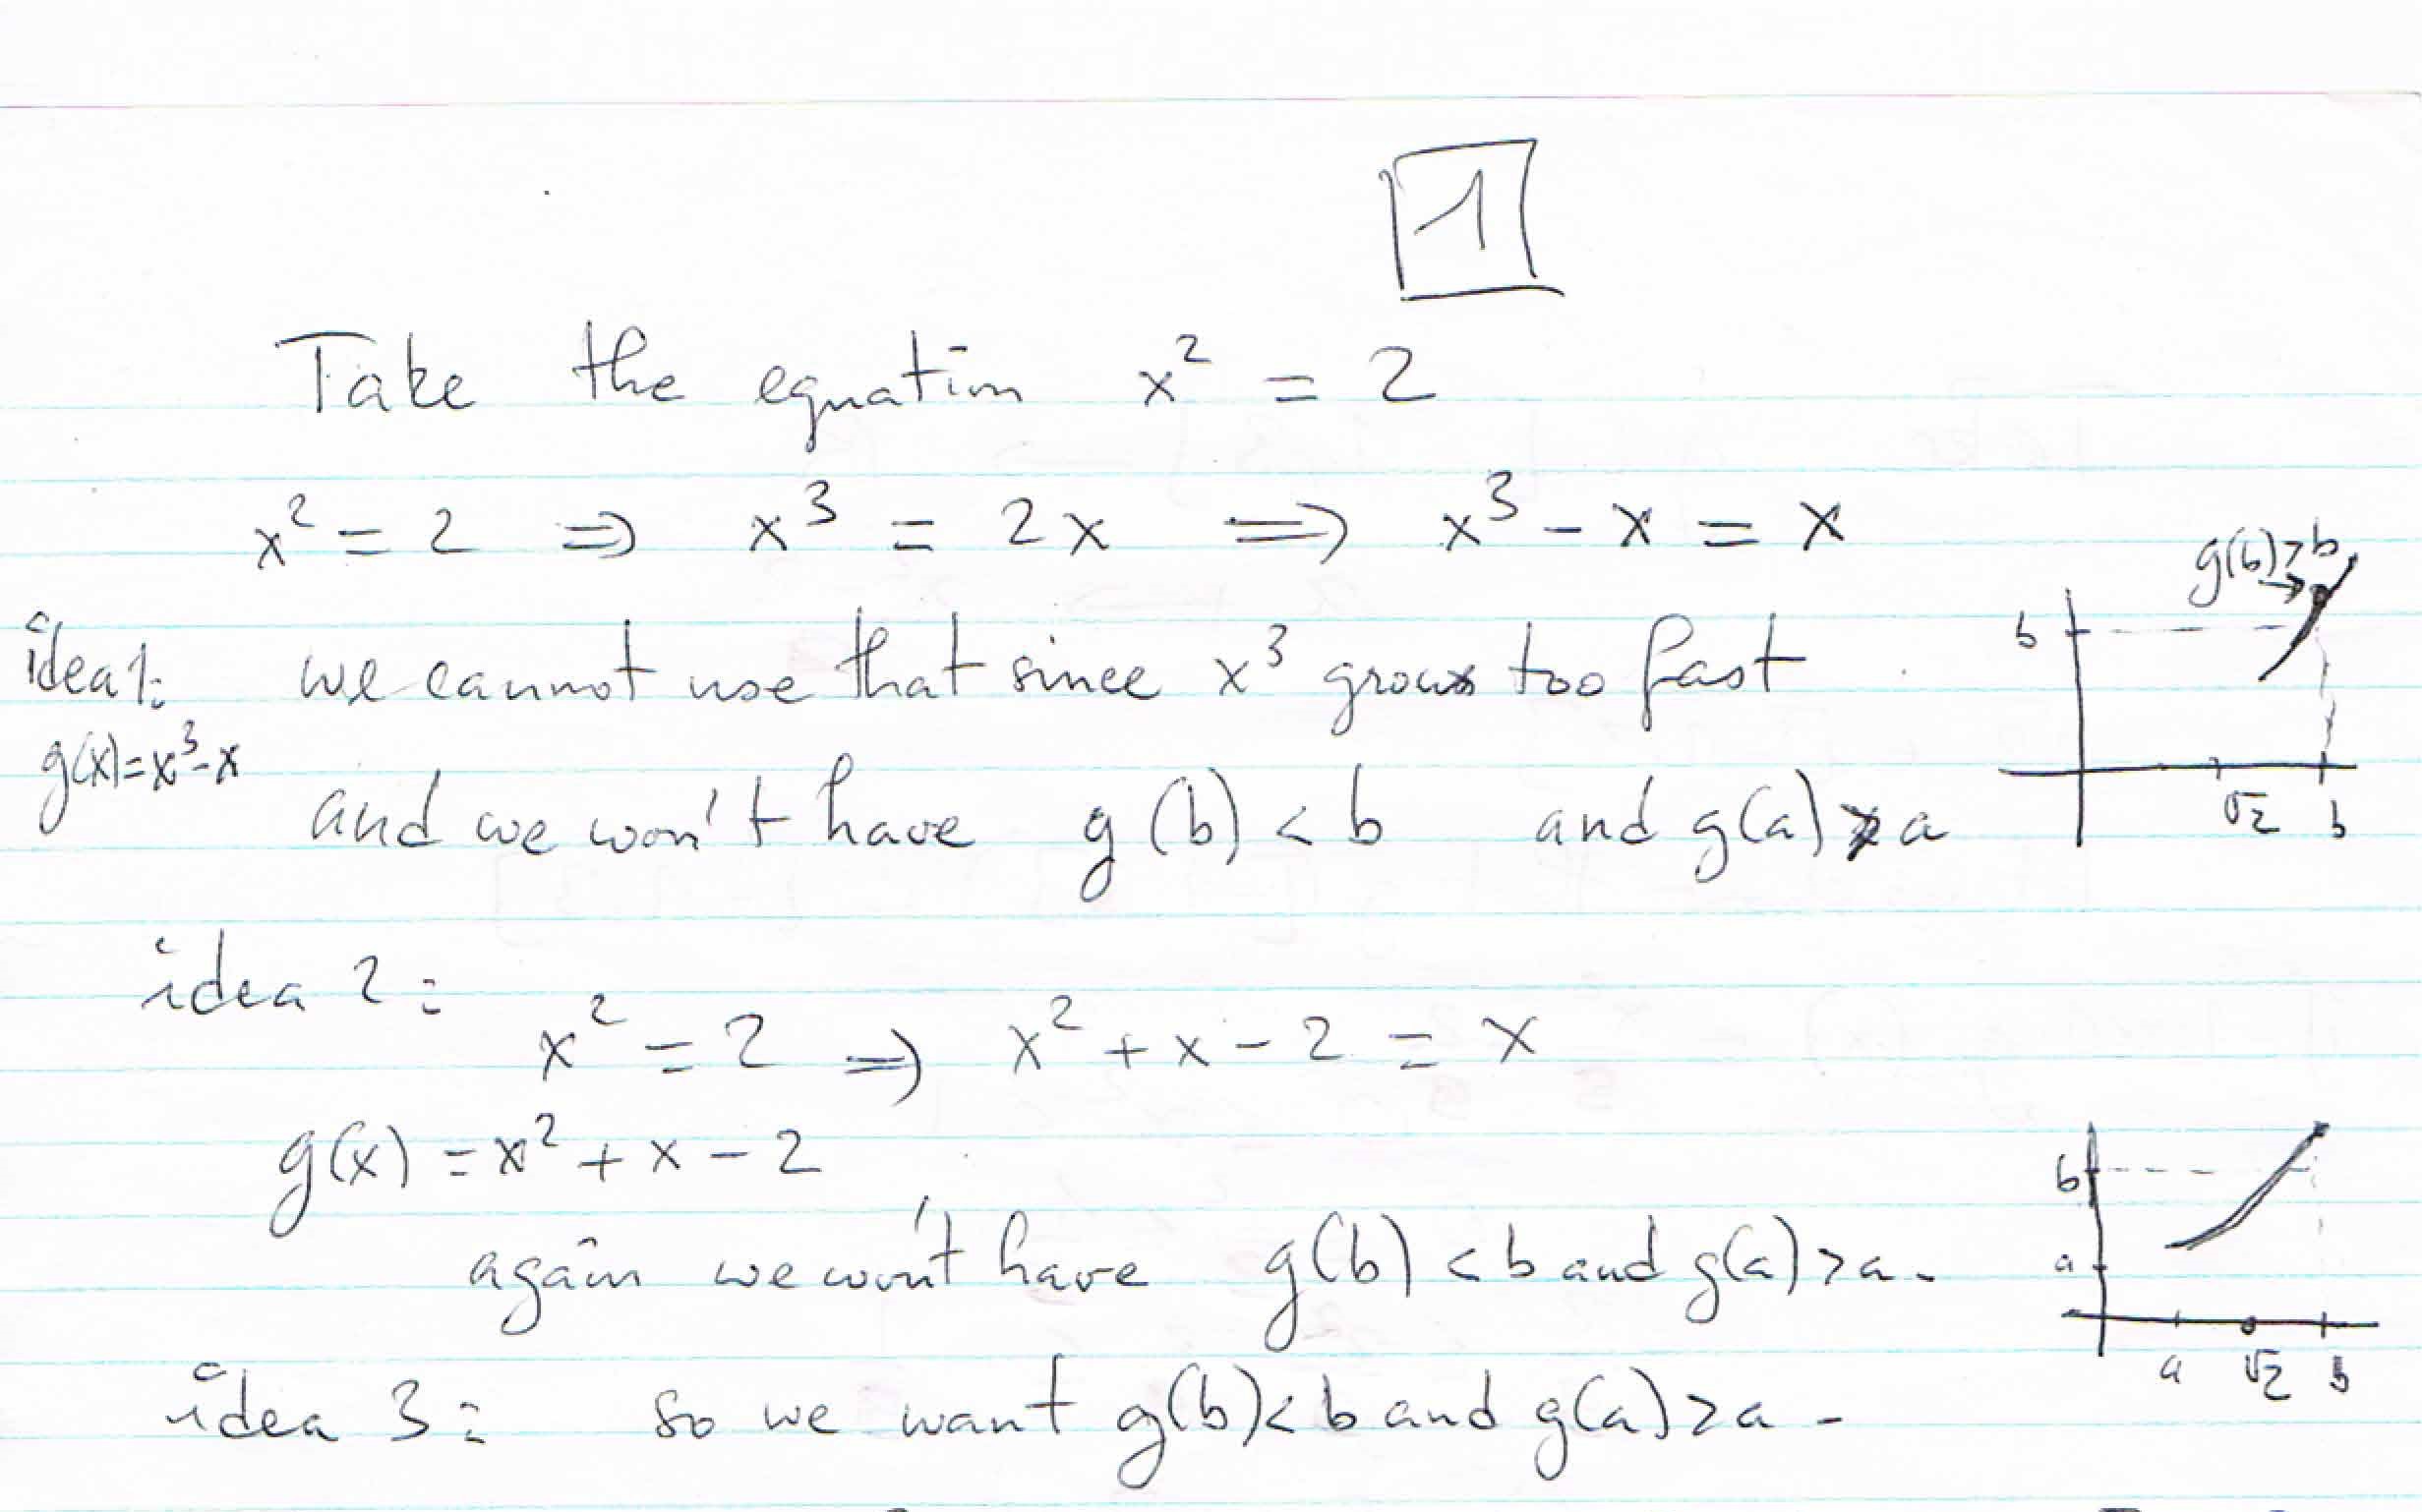 1
Take the equation x² = 2
x² = 2 ⇒ x³ = 2x ⟹ x³ - x = x
g(b)>b
b
idea 1: we cannot use that since x³ grows too fast
g(x)=x³-x
√2 b
and we won't have g(b) < b and g(a) > a
idea 2:
x² = 2 ⇒ x² + x - 2 = x
g(x) = x² + x - 2
b
again we won't have g(b) < b and g(a) > a.
a
a √2 b
idea 3: so we want g(b) < b and g(a) > a -